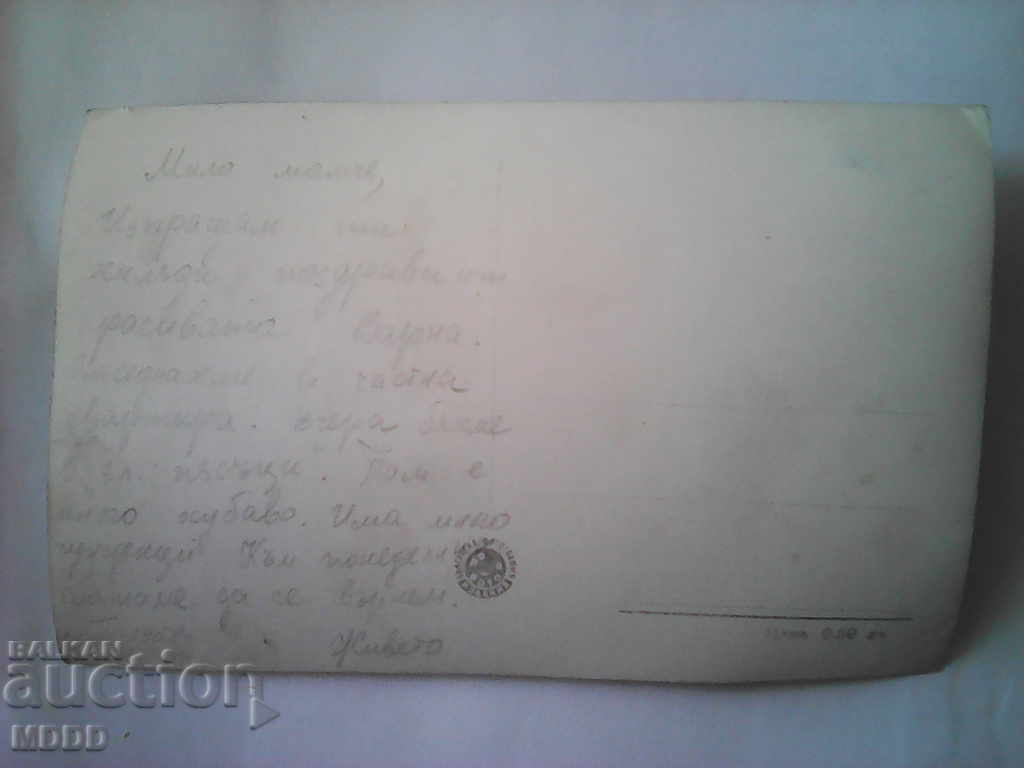 Мила мамче,
Изпращам ти
хиляди поздрави от
красивата Варна.
в частна
квартира. Вчера бяхме
Зл. пясъци. Там е
много хубаво. Има много
чужденци Към понедел
да се върнем.
Живето
Цена 0.50 лв.
BALKAN
auction
MDDD